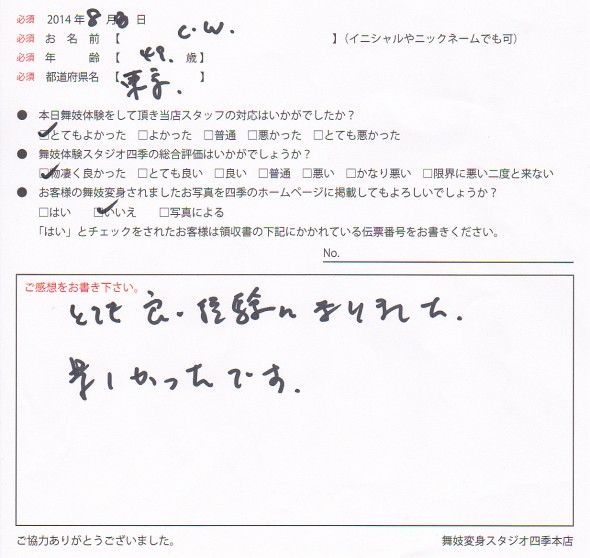 必須 2014年8月8日
必須 お名前【 C.W. 】(イニシャルやニックネームでも可)
必須 年齢【 49. 歳】
必須 都道府県名【 東京. 】
● 本日舞妓体験をして頂き当店スタッフの対応はいかがでしたか?
☑とてもよかった □よかった □普通 □悪かった □とても悪かった
● 舞妓体験スタジオ四季の総合評価はいかがでしょうか?
☑物凄く良かった □とても良い □良い □普通 □悪い □かなり悪い □限界に悪い二度と来ない
● お客様の舞妓変身されましたお写真を四季のホームページに掲載してもよろしいでしょうか?
□はい ☑いいえ □写真による
「はい」とチェックをされたお客様は領収書の下記にかかれている伝票番号をお書きください。
No.
ご感想をお書き下さい。
とても良い経験になりました.
楽しかったです.
ご協力ありがとうございました。 舞妓変身スタジオ四季本店